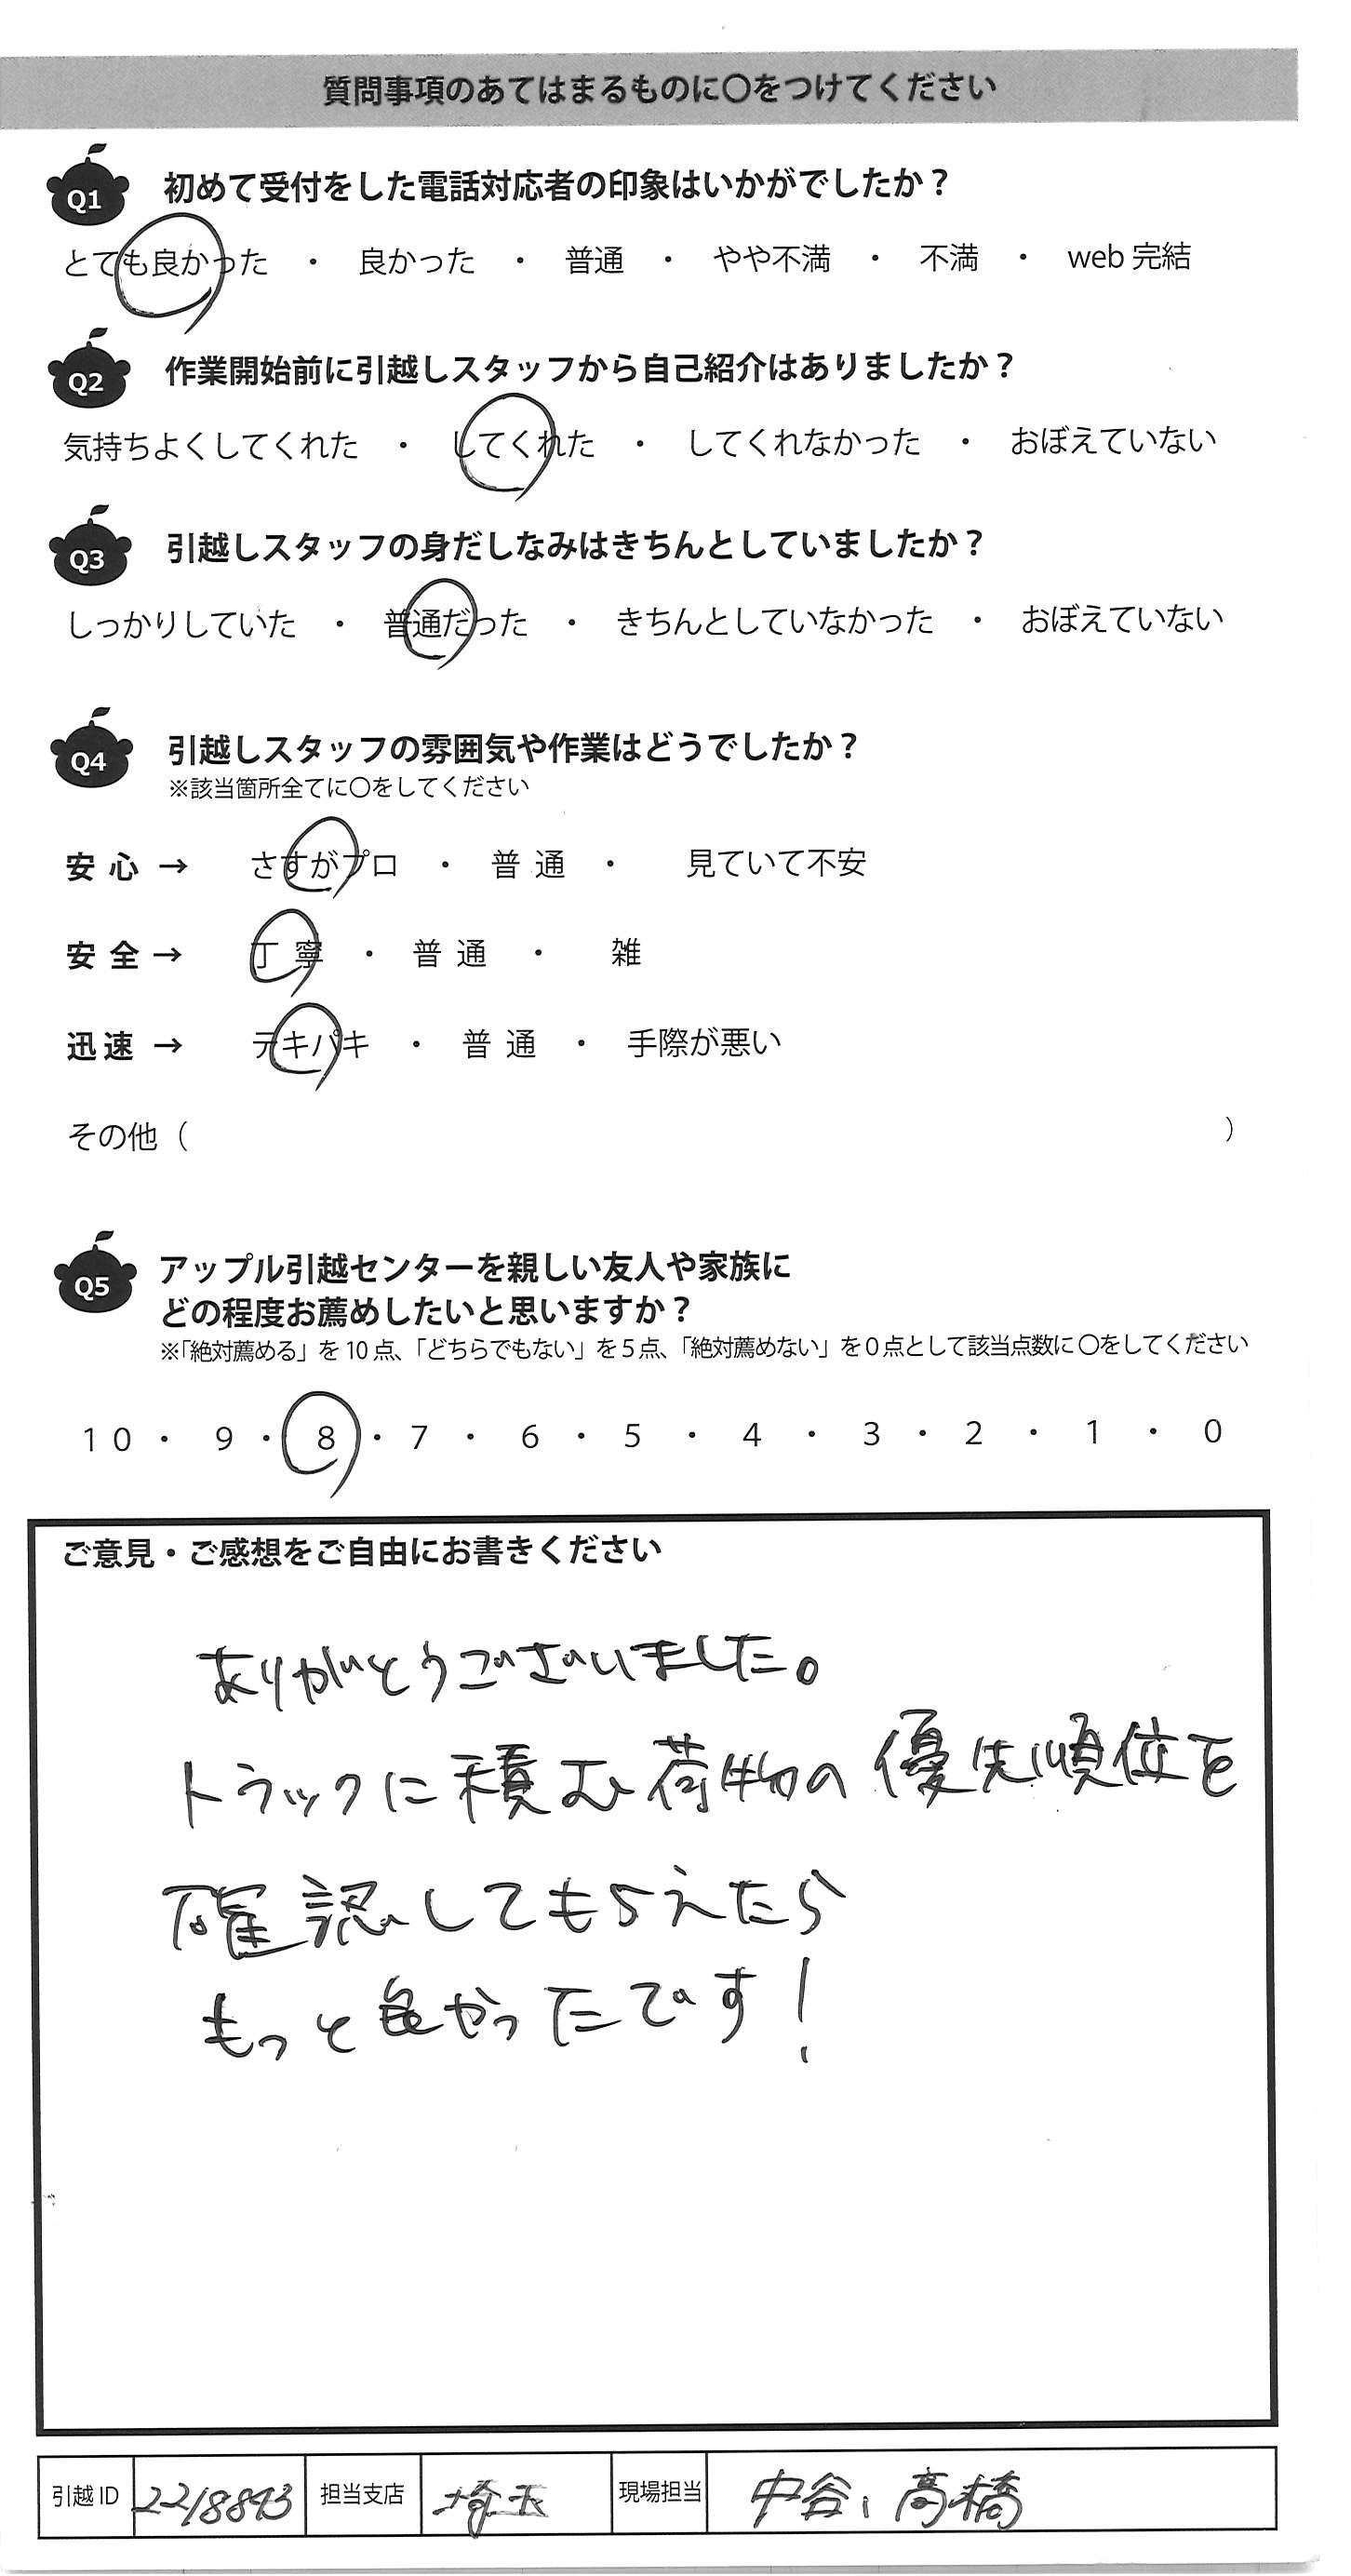 質問事項のあてはまるものに〇をつけてください
Q1 初めて受付をした電話対応者の印象はいかがでしたか？
とても良かった ・ 良かった ・ 普通 ・ やや不満 ・ 不満 ・ web 完結
Q2 作業開始前に引越しスタッフから自己紹介はありましたか？
気持ちよくしてくれた ・ してくれた ・ してくれなかった ・ おぼえていない
Q3 引越しスタッフの身だしなみはきちんとしていましたか？
しっかりしていた ・ 普通だった ・ きちんとしていなかった ・ おぼえていない
Q4 引越しスタッフの雰囲気や作業はどうでしたか？
※該当箇所全てに〇をしてください
安心 → さすがプロ ・ 普通 ・ 見ていて不安
安全 → 丁寧 ・ 普通 ・ 雑
迅速 → テキパキ ・ 普通 ・ 手際が悪い
その他（ ）
Q5 アップル引越センターを親しい友人や家族に
どの程度お薦めしたいと思いますか？
※「絶対薦める」を 10 点、「どちらでもない」を 5 点、「絶対薦めない」を 0 点として該当点数に〇をしてください
10 ・ 9 ・ 8 ・ 7 ・ 6 ・ 5 ・ 4 ・ 3 ・ 2 ・ 1 ・ 0
ご意見・ご感想をご自由にお書きください
ありがとうございました。
トラックに積む荷物の優先順位を
確認してもらえたら
もっと良かったです！
引越 ID 2218843 担当支店 埼玉 現場担当 中谷、高橋